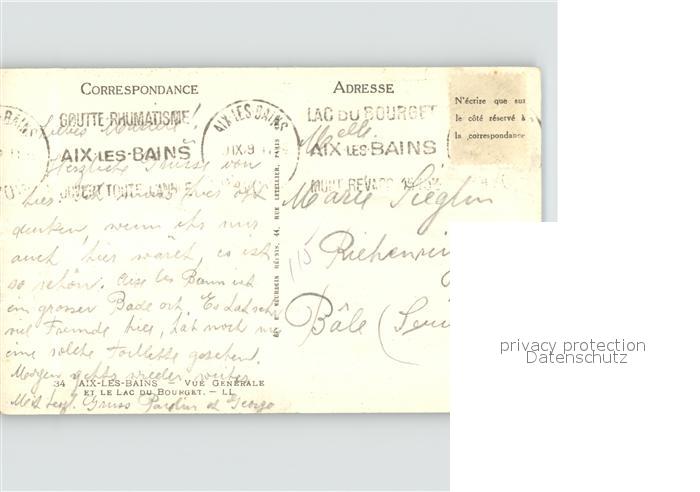 CORRESPONDANCE
ADRESSE
GOUTTE-RHUMATISME
AIX-LES-BAINS
OUVERT TOUTE L'ANNÉE
AIX-LES-BAINS
LAC DU BOURGET
AIX-LES-BAINS
MONT REVARD
N'écrire que sur
le côté réservé à
la correspondance
Liebes Marieli!
Herzliche Grüsse von
hier.
denken, wenn ihr nur
auch hier wäret, es ist
so schön. Aix les Bains ist
ein grosser Bade ort. Es hat sehr
viel Fremde hier, hab noch nie
eine solche Toillette gesehen.
Morgen gehts wieder weiter
Mit herzl. Gruss Paulin et George
34 AIX-LES-BAINS - VUE GÉNÉRALE
ET LE LAC DU BOURGET. - LL
44, RUE LETELLIER, PARIS
Melle
Marie Sieglin
Riehenring
115
Bâle
privacy protection
Datenschutz